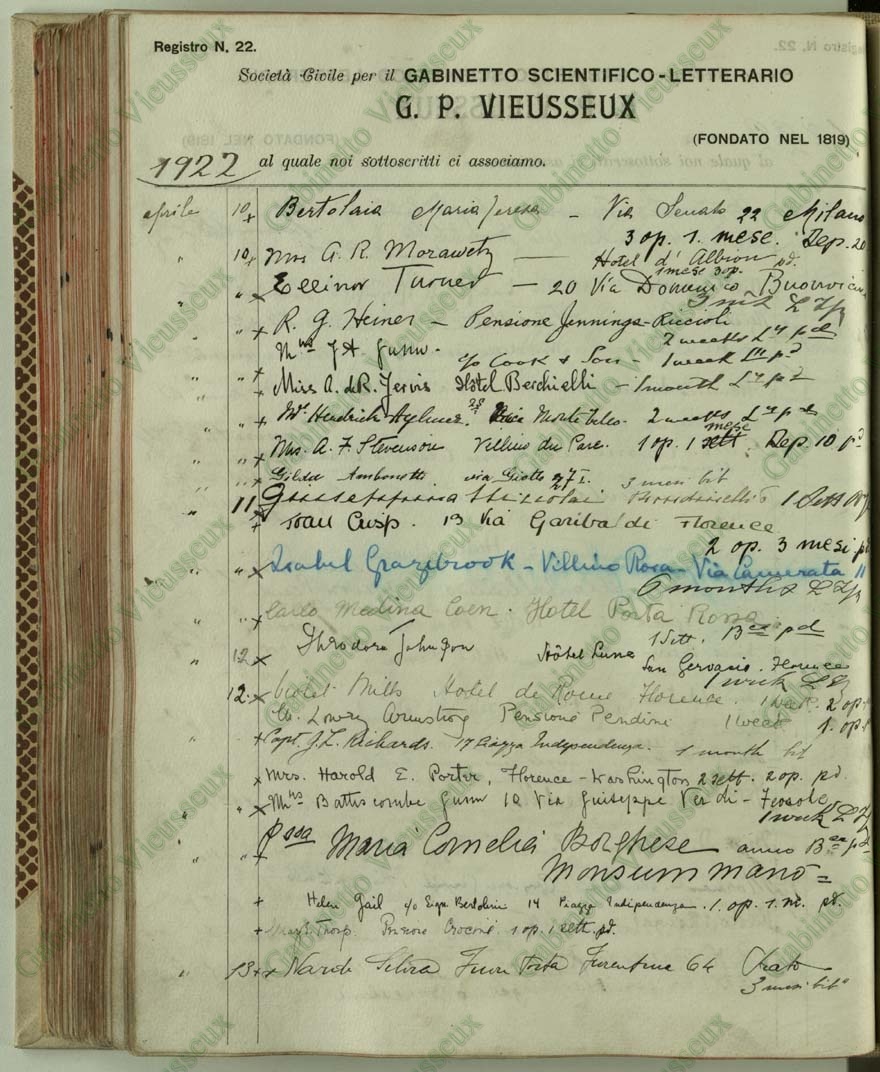 Registro N. 22.
Società Civile per il GABINETTO SCIENTIFICO-LETTERARIO
G. P. VIEUSSEUX
(FONDATO NEL 1819)
1922 al quale noi sottoscritti ci associamo.
aprile 10 x Bertolaia Maria Teresa – Via Senato 22 Milano
3 op. 1. mese. Dep. 20
" 10 x Mrs A. R. Morawetz — Hotel d'Albion pd.
1 mese 3 op.
" " x Ellinor Turner — 20 Via Domenico
" " x R. G. Heiner – Pensione Jennings-Riccioli
2 weeks
Mrs J A Gunn. c/o Cook & Son – 1 week
" " x Miss A. deR. Jervis Hôtel Berchielli – 1 month
" " x Hendrick 2 weeks
" " x Mrs. A. F. Stevenson Villino du Parc. 1 op. 1 mese Dep. 10
" " x Gilda via Giotto 27 3 mesi
" 11 x
x Joan Cusp. 13 Via Garibaldi Florence
2 op. 3 mesi
" " x Isabel Grazebrook – Villino Rosa – Via Camerata 11
6 months
" " x Carlo Medina Coen. Hotel Porta Rossa
1 Sett.
" 12 x Theodora Johnson Hôtel Luna
San Gervasio. Florence
1 week
12. x Violet Mills Hotel de Rome Florence. 1 week. 2 op.
Lowry Armstrong Pensione Pendini 1 week 1. op.
" x Capt. J. L. Richards. 17 Piazza Indipendenza. 1 month
x Mrs. Harold E. Porter, Florence – Washington 2 sett. 2 op. pd.
" x Mrs Battiscombe Gunn 10 Via Giuseppe Verdi – Fiesole
1 week
" " x Pssa Maria Cornelia Borghese anno
Monsummano =
x Helen Gail c/o Sigra Bertolini 14 Piazza Indipendenza. 1. op. 1. m. pd.
x Thorp. Pensione 1 op. 1 sett. pd.
" 13 x x Nardi 64 Prato
3 mesi